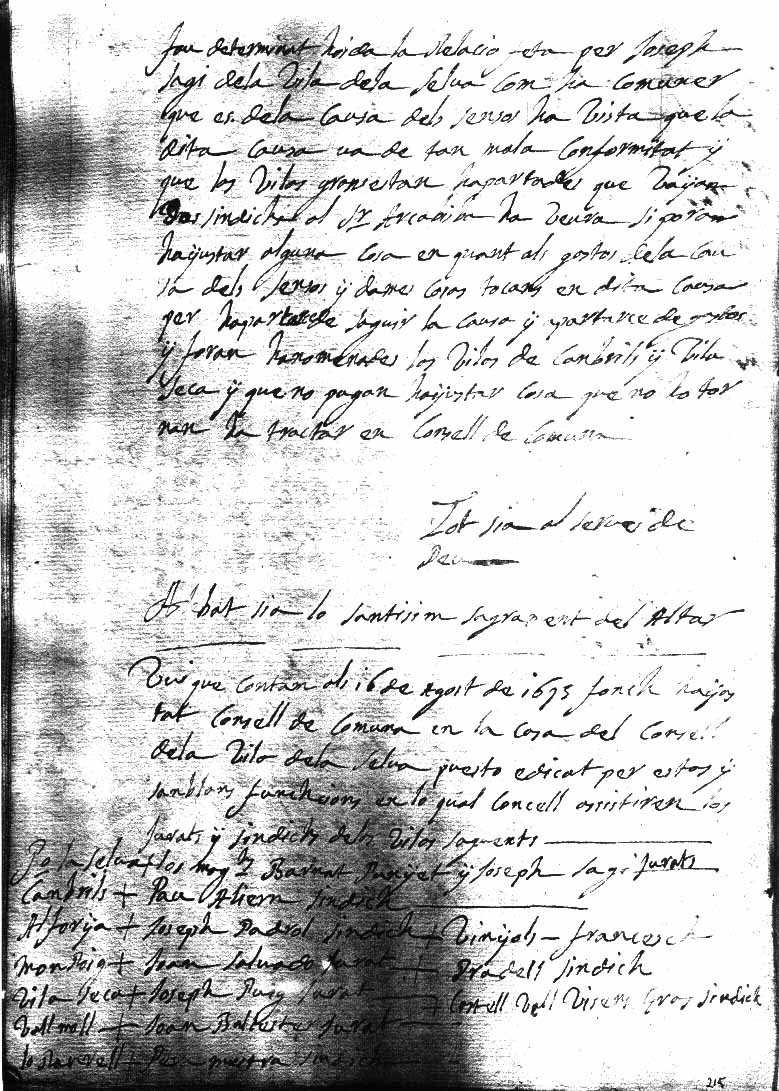 fou determinat hoida la Relacio feta per Joseph
sagi dela Vila dela selva com ha Comuner
que es dela Causa dels sensos ha Vista que la
dita Causa va de tan mala Conformitat y
que las Vilas grans estan hapartades que vayan
Dos sindichs al Sr Arcadia ha veura si poran
hajustar alguna Cosa en quant als gastos dela Cau
sa dels sensos y dames cosas tocans en dita Causa
per hapartarce de saguir la Causa y apartarce de gastos
y foran hanomenades los Vilas de Cambrils y Vila
Seca y que no pugan hajustar Cosa que no ho tor
nan ha tractar en Consell de Comuna
Tot sia al servei de
Deu
Alabat sia lo santisim sagrament del Altar
Vui que Contan als 16 de Agost de 1675 fonch hajus
tat Consell de Comuna en la Casa del Consell
dela Vila dela Selva puesto edicat per estos y
sanblans funchsions en lo qual Concell assistiren los
Jurats y sindichs dels Vilas saguents
Po la Selva + los magchs Barnat Punyet y Joseph sagi Jurats
Cambrils + Pau Aliern sindich
Alforja + Joseph Padrol sindich + Vinyols - Francesch
Monroig + Joan Salvado Jurat + Pradell sindich
Vila Seca + Joseph Puig Jurat + Consell Vall Visens Gros sindich
Vallmoll + Joan Ballester Jurat
lo Raverell + Pera mestra sindich
215